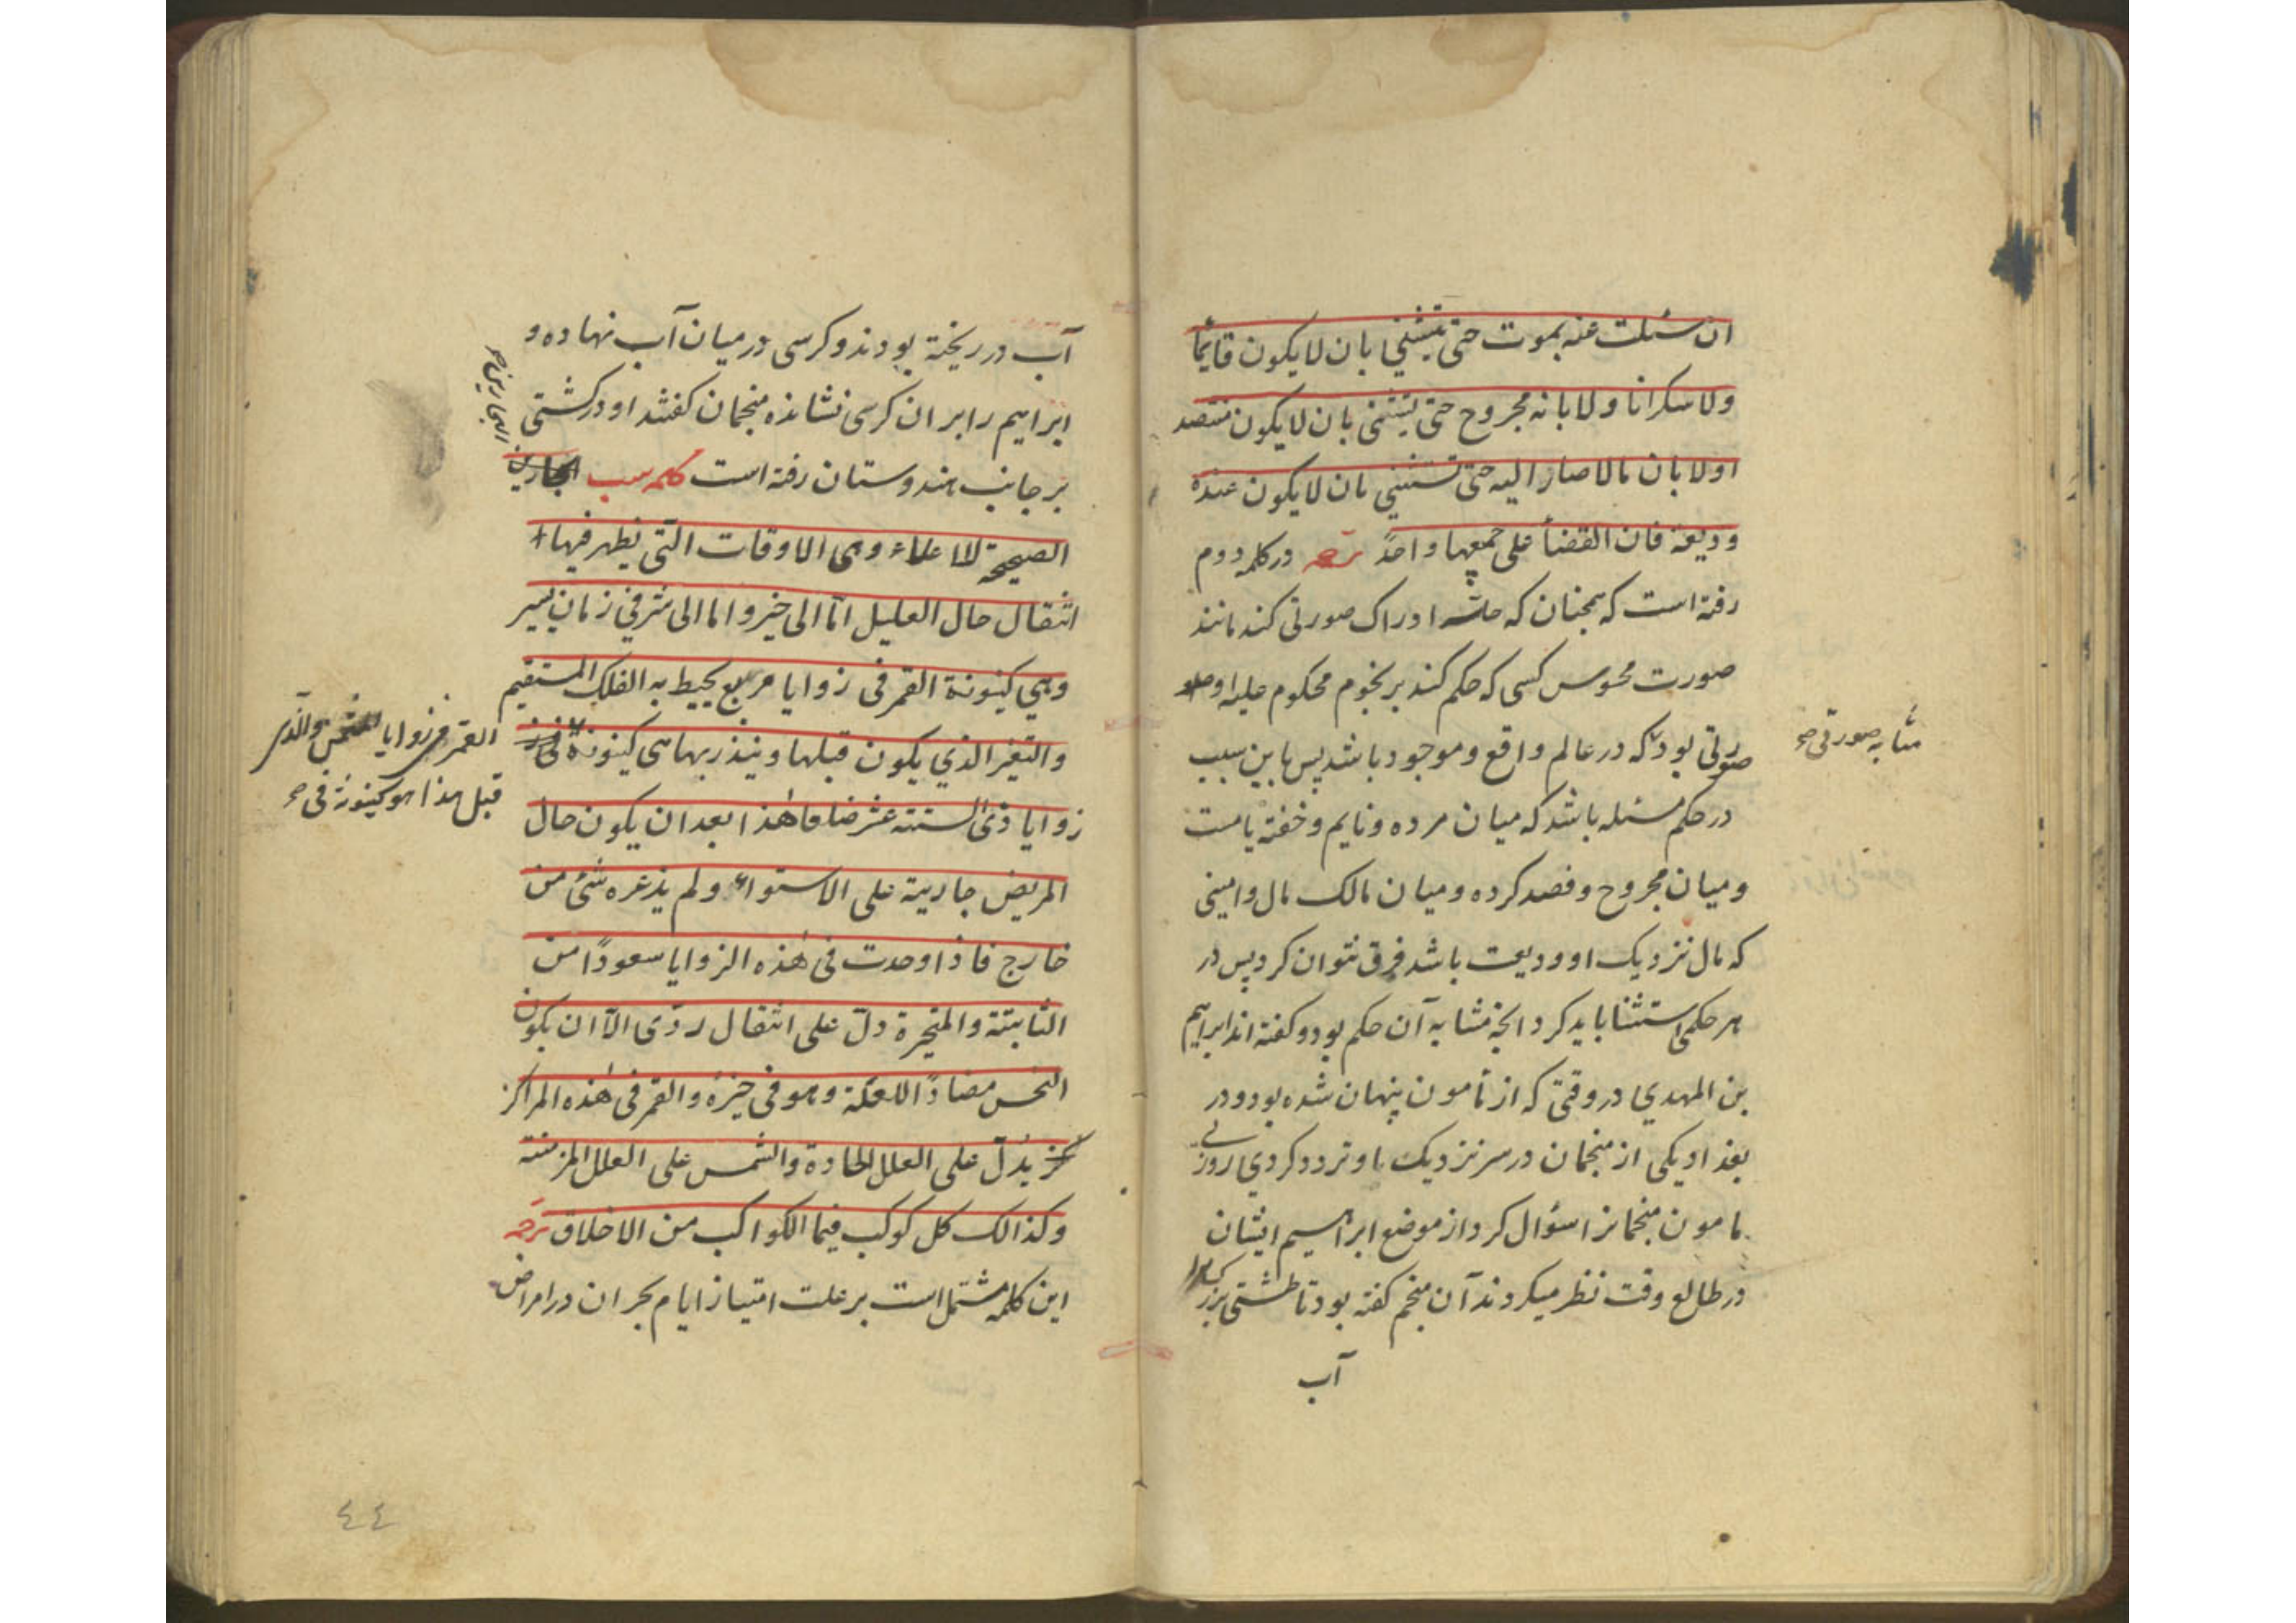 ان سئلت عنه بموت حتی یتثنی بان لا یکون قایمًا
ولا سکرانا ولا بانه مجروح حتی یتثنی بان لا یکون مفتصد
اولا بان مالا صار الیه حتی تستثنی بان لا یکون عنده
ودیعة فان القضأ علی جمیعها واحدً ترجمه در کلمه دوم
رفته است که همچنان که حاسّه ادراک صورتی کند مانند
صورت محسوس کسی که حکم کند بر نجوم محکوم علیه او
صورتی بود که در عالم واقع و موجود باشد پس باین سبب
در حکم مسئله باشد که میان مرده و نایم و خفته یا مست
و میان مجروح و فصد کرده و میان مالک مال و امینی
که مال نزدیک او ودیعت باشد فرق نتوان کرد پس در
هر حکمی استثنا باید کرد انچه مشابه آن حکم بود و کفته اند ابراهیم
بن المهدی در وقتی که از مأمون پنهان شده بود و در
بغداد یکی از منجمان در سر نزدیک با و تردد کردی روزی
مامون منجمانرا سؤال کرد از موضع ابراهیم ایشان
در طالع وقت نظر میکردند آن منجم کفته بود تا طشتی بزرک
آب
مشابه صورتی صح
آب در ریخته بودند و کرسی در میان آب نهاده و
ابراهیم را بر ان کرسی نشانده منجمان کفتند او در کشتی
بر جانب هندوستان رفته است کلمه سب
البحارین صح
الصحیحة للاعلاء وهی الاوقات التی یظهر فیها
انتقال حال العلیل امّا الی خیر و اما الی شر فی زمان یسیر
وهی کینونة القمر فی زوایا مربع یحیط به الفلک المستقیم
والتغیر الذی یکون قبلها وینذر بها هی کینونة
القمر فی زوایا والذی
قبل هذا هو کینونة فی صح
زوایا ذی الستته عشر ضلعا هذا بعد ان یکون حال
المریض جاریة علی الاستواء ولم یذعره شئ من
خارج فاذا وجدت فی هذه الزوایا سعودًا من
الثابتة والمتحیرة دلّ علی انتقال ردّی الّا ان یکون
النحس مضادًا للعلة وهو فی حیزه والقمر فی هذه المراکز
یدلّ علی العلل الحادة والشمس علی العلل المزمنته
وکذالک کل کوکب فیما الکواکب من الاخلاق ترجمه
این کلمه مشتمل است بر علت امتیاز ایام بحران در امراض
٤٤